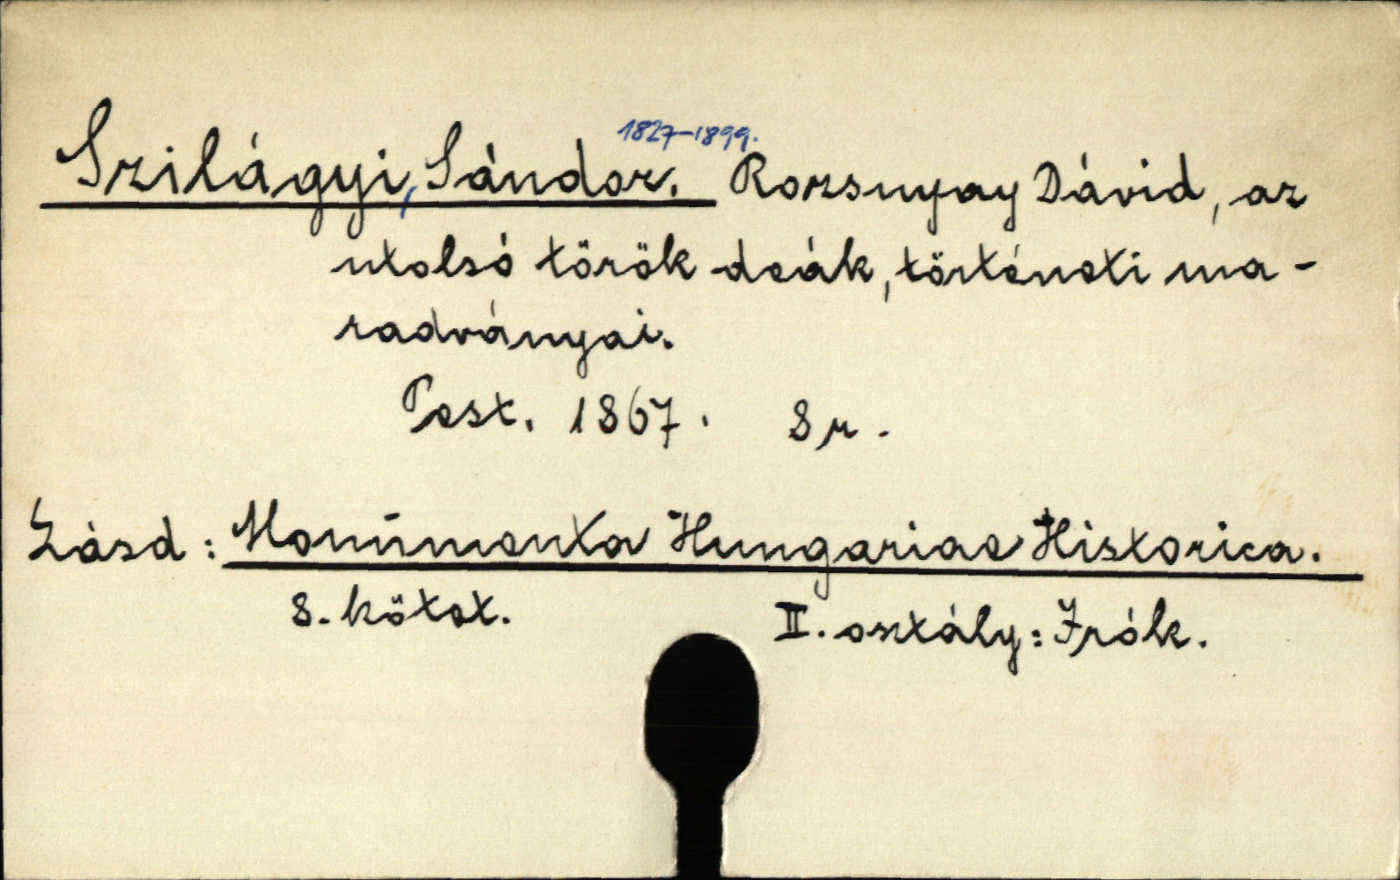 Szilágyi, Sándor. 1827–1899. Rozsnyay Dávid, az
utolsó török deák, történeti ma-
radványai.
Pest. 1867. 8r.
Lásd: Monumenta Hungariae Historica.
8. kötet. II. osztály: Irók.